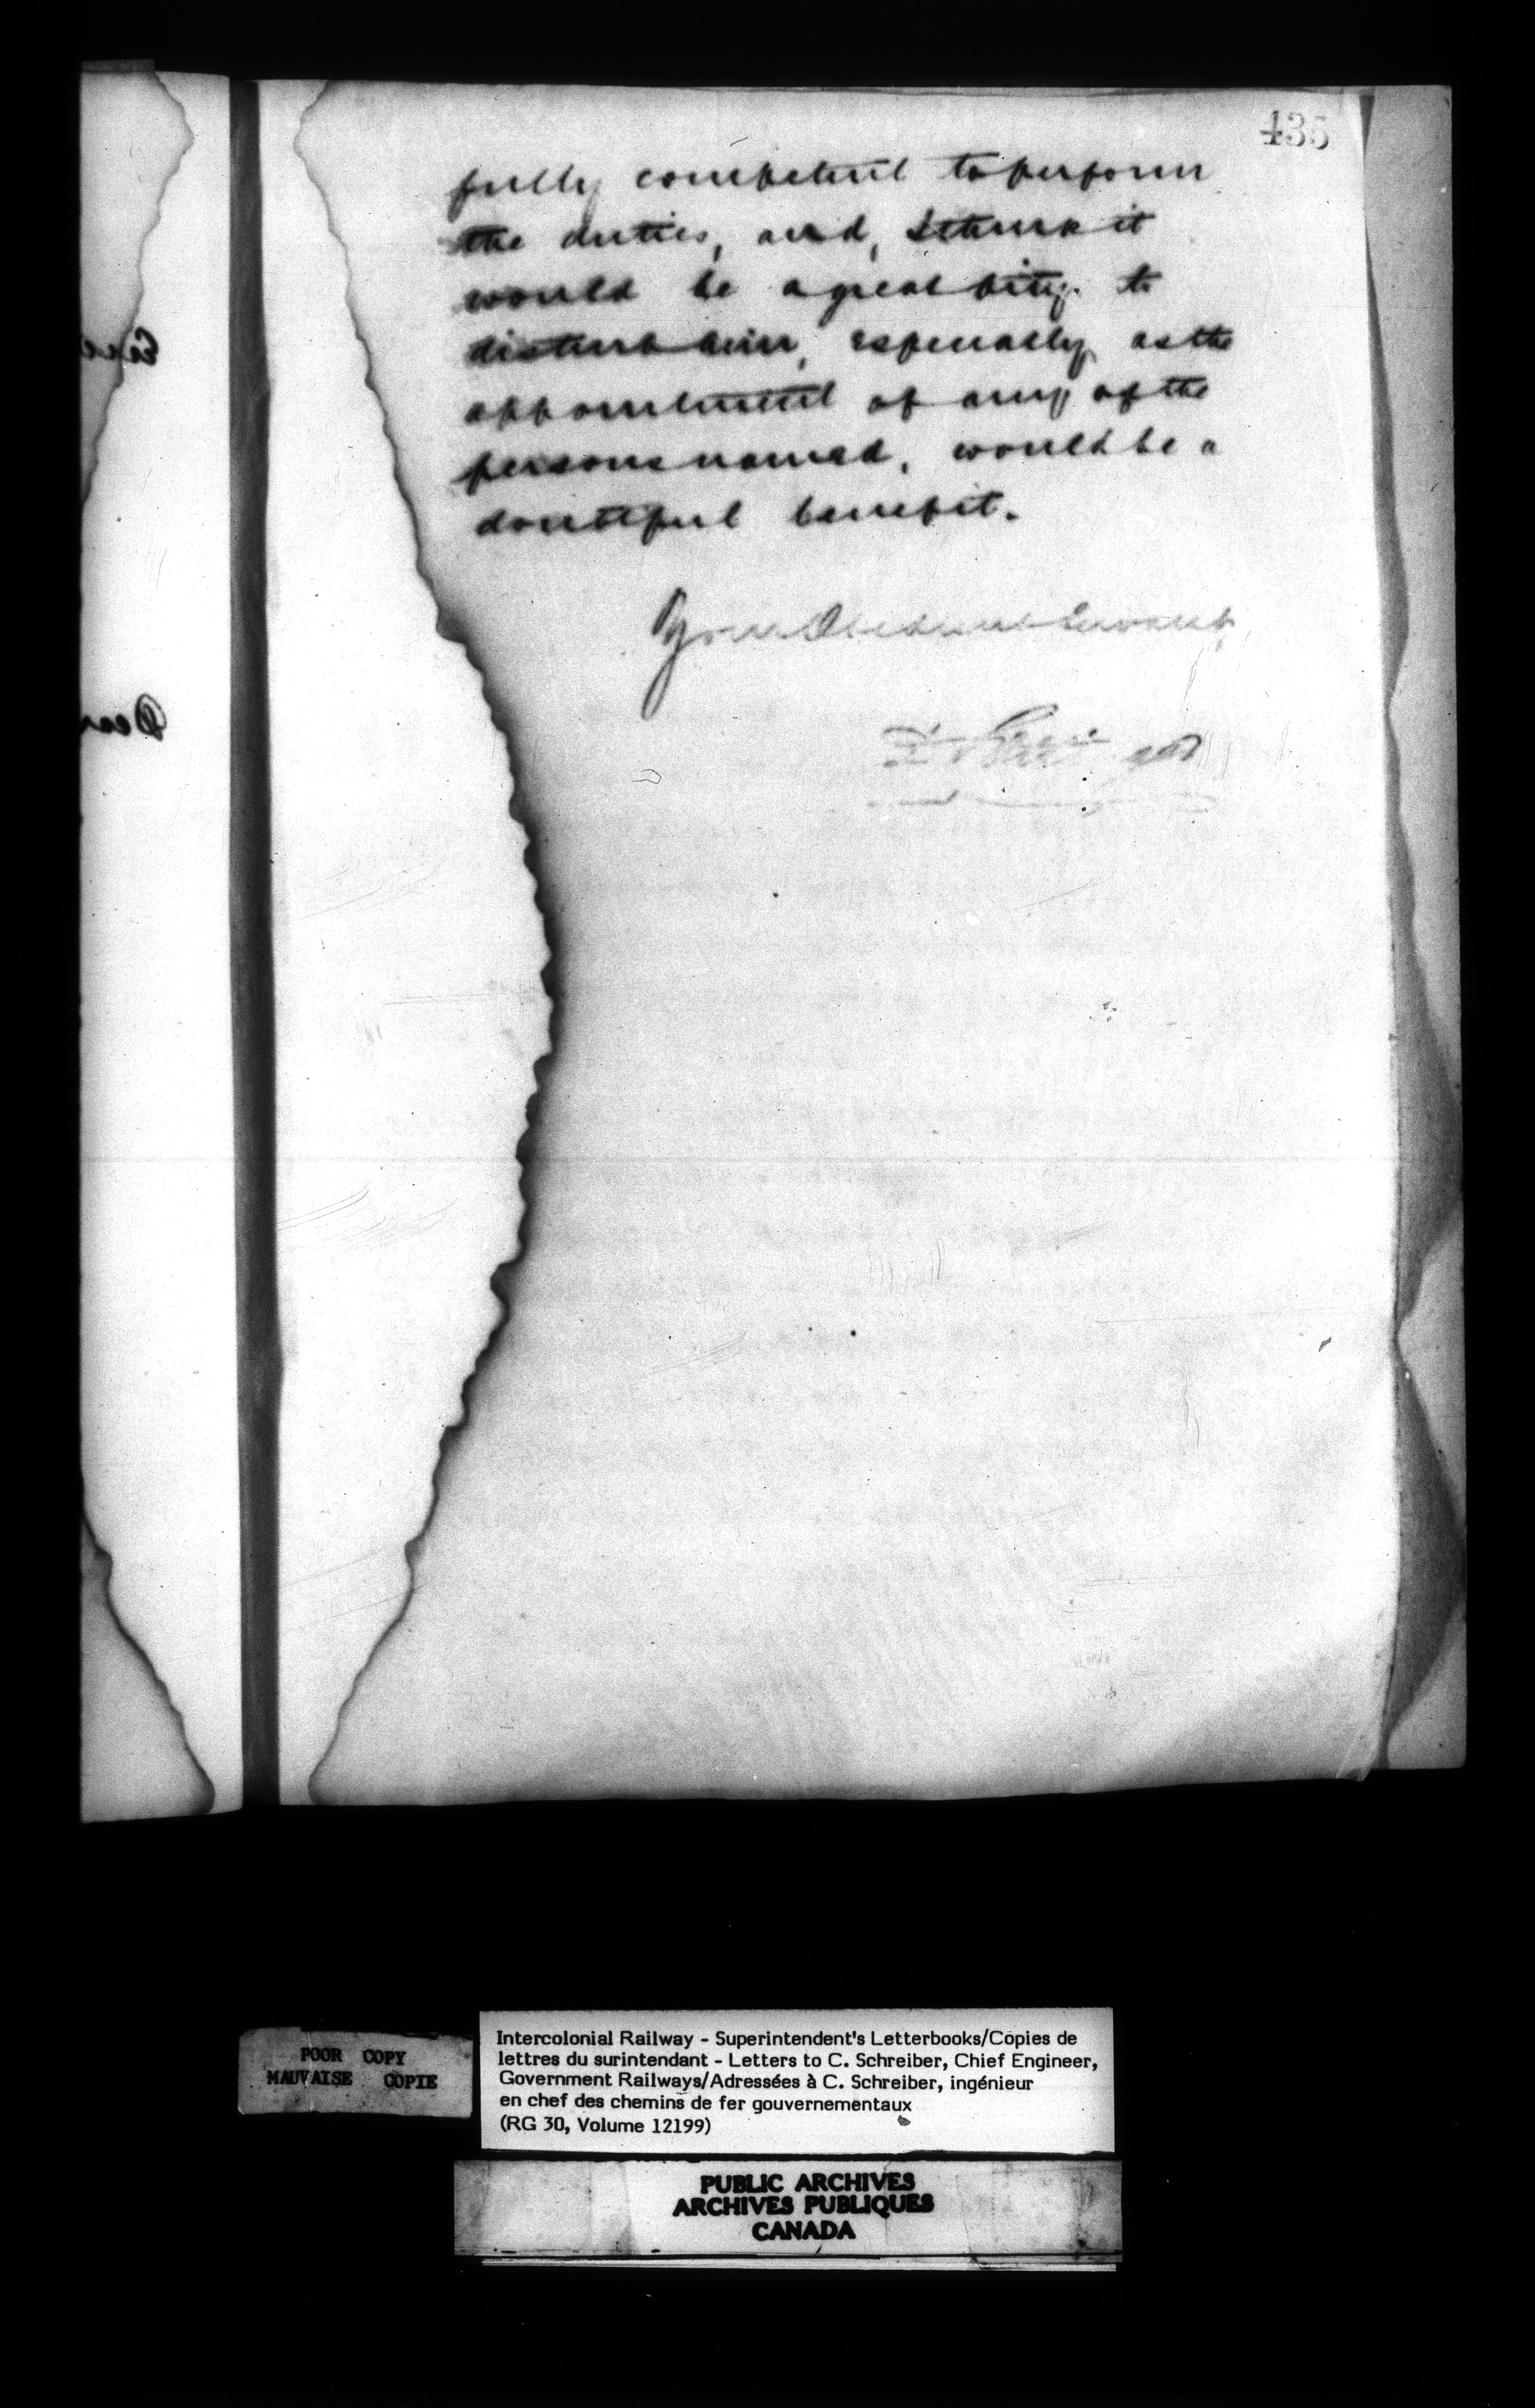 435
fully competent to perform
the duties, and, I think it
would be a great pity to
disturb him, especially as the
appointment of any of the
persons named, would be a
doubtful benefit.
Your Obedient Servant
Dear
POOR COPY
MAUVAISE COPIE
Intercolonial Railway - Superintendent's Letterbooks/Copies de
lettres du surintendant - Letters to C. Schreiber, Chief Engineer,
Government Railways/Adressées à C. Schreiber, ingénieur
en chef des chemins de fer gouvernementaux
(RG 30, Volume 12199)
PUBLIC ARCHIVES
ARCHIVES PUBLIQUES
CANADA